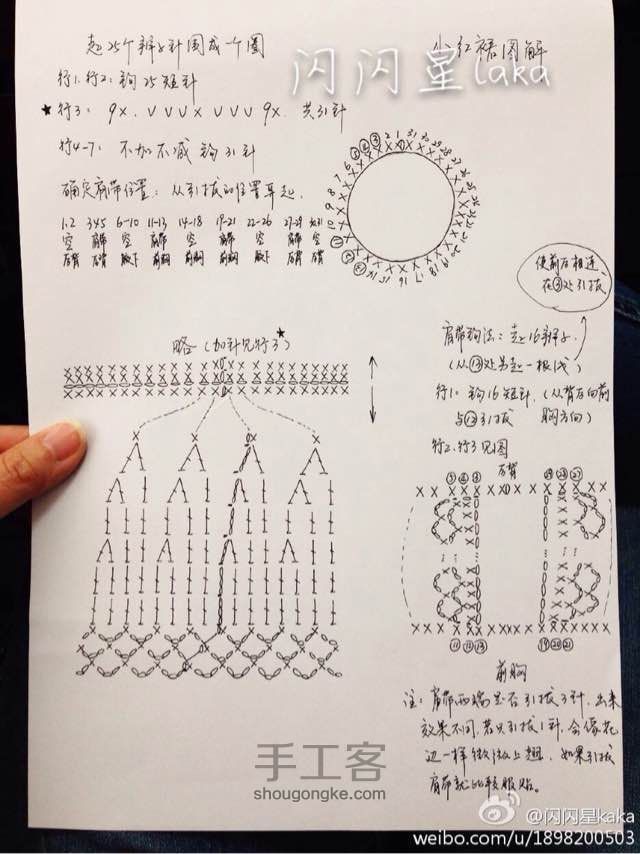 起25个辫子针围成一个圈
小红裙图解
闪闪星kaka
行1.行2: 钩25短针
★行3: 9X. V V V X V V V 9X. 共31针
行4-7: 不加不减 钩31针
确定肩带位置: 从引拔的位置算起.
1.2 3.4.5 6-10 11-13 14-18 19-21 22-26 27-29 30.31
空 肩带 空 肩带 空 肩带 空 肩带 空
后背 后背 腋下 前胸 前胸 前胸 腋下 后背 后背
使前后相连.
在③处引拔
略(加针见行3★)
肩带钩法: 起16辫子.
(从⑬处另起一根线)
行1: 钩16短针. (从背后向前
与⑫引拔 胸方向)
行2.行3见图
后背
⑤ ④ ③ ㉙ ㉘ ㉗
⑪ ⑫ ⑬ ⑲ ⑳ ㉑
前胸
注: 肩带两端是否引拔3针, 出来
效果不同, 若只引拔1针, 会像花
边一样微微上翘, 如果引拔
肩带就比较服贴。
手工客
shougongke.com
@闪闪星kaka
weibo.com/u/1898200503